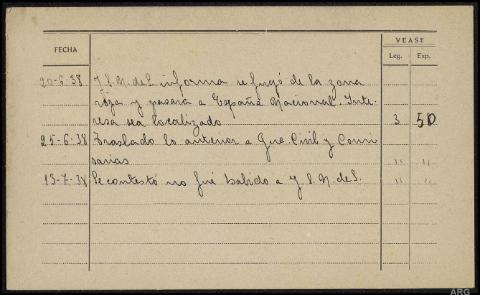 FECHA
VEASE
Leg. Exp.
20-6-38 J.S.N. de S. informa se fugó de la zona
roja y pasara a España Nacional. Inte-
resa sea localizado 3 50
25-6-38 Traslado lo anterior a Gno. Civil y Comi
sarias " "
13-7-38 Se contestó no fué habido a J.S.N. de S. " "
ARG